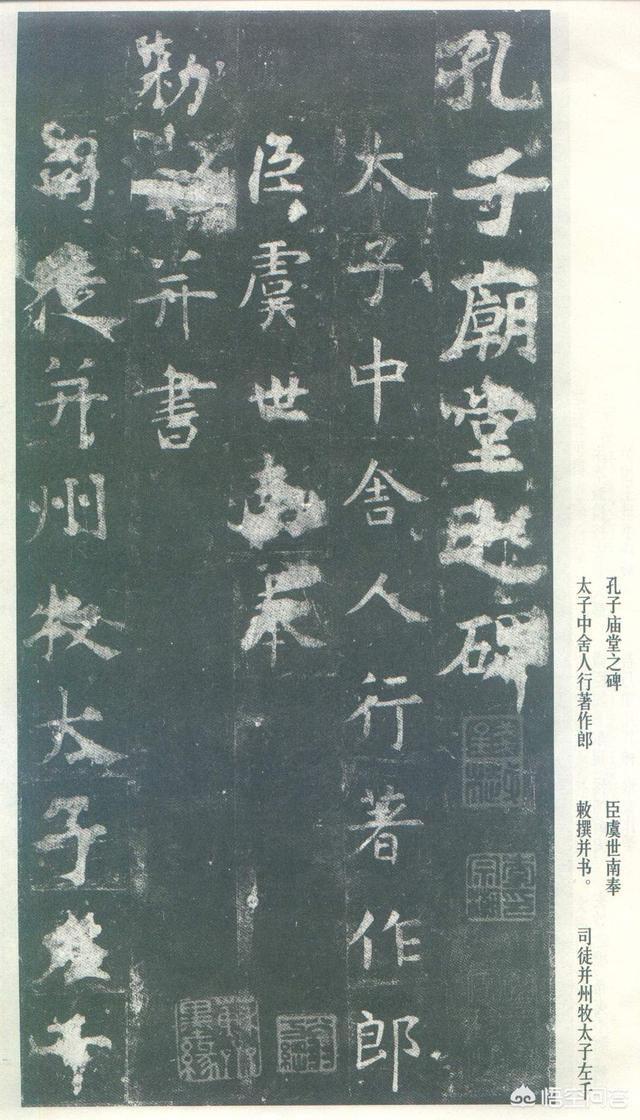 孔子廟堂之碑
太子中舍人行著作郎
臣虞世南奉
勅并書
司徒并州牧太子左千
孔子庙堂之碑
太子中舍人行著作郎
臣虞世南奉
敕撰并书。
司徒并州牧太子左千
悟空问答